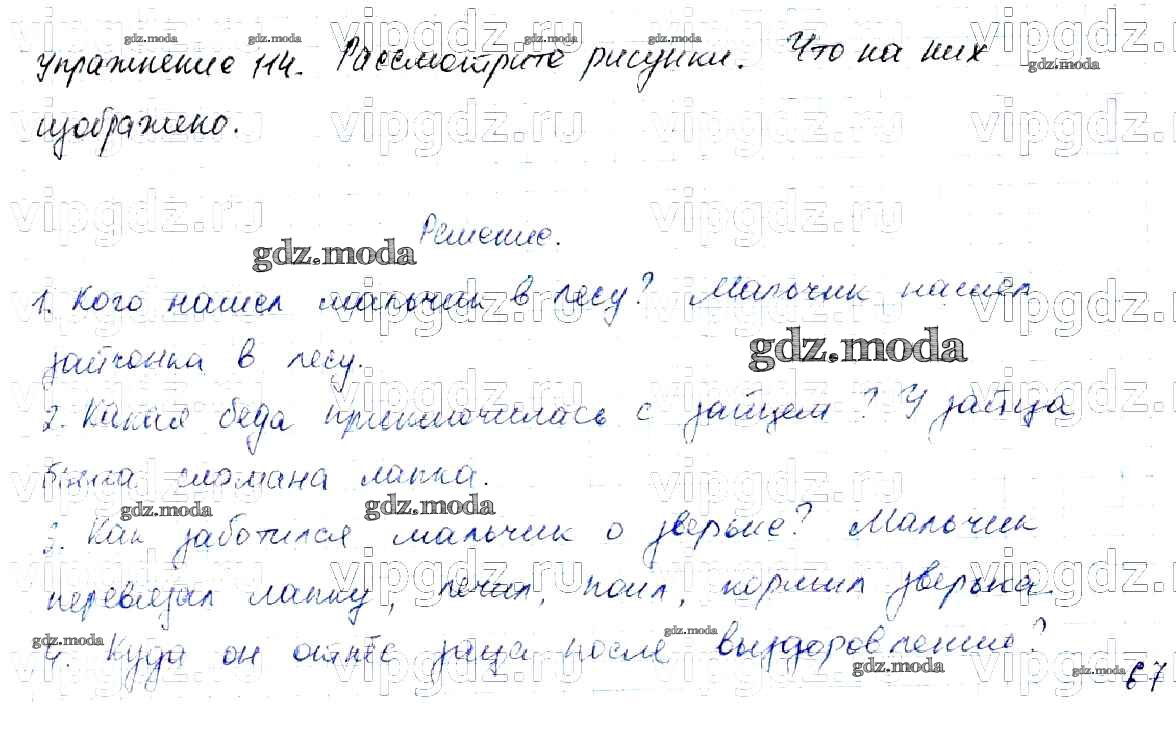 Упражнение 114. Рассмотрите рисунки. Что на них
изображено.
Решение.
gdz.moda
1. Кого нашел мальчик в лесу? Мальчик нашел
зайчонка в лесу.
gdz.moda
2. Какая беда приключилась с зайцем? У зайца
была сломана лапка.
gdz.moda
3. Как заботился мальчик о зверьке? Мальчик
перевязал лапку, лечил, поил, кормил зверька
4. Куда он отнёс заца после выздоровление?
67